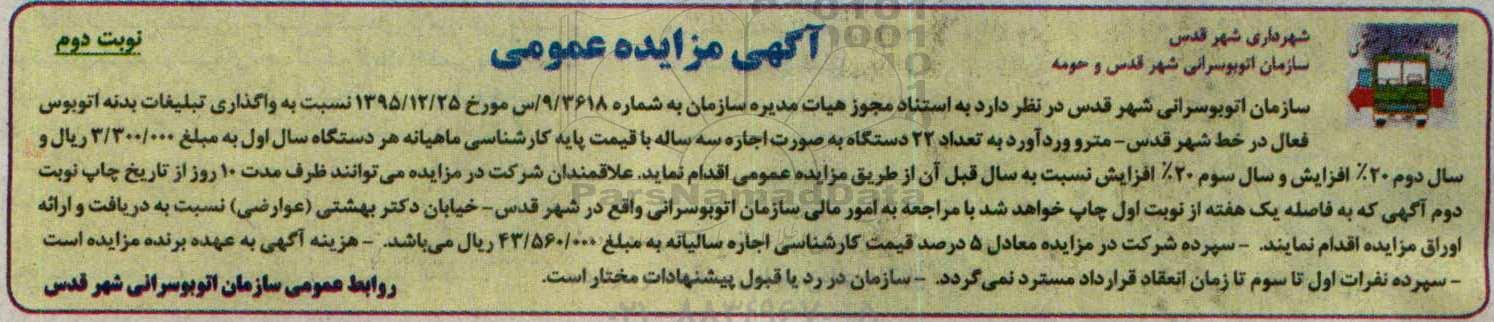 شهرداری شهر قدس
سازمان اتوبوسرانی شهر قدس و حومه
آگهی مزایده عمومی
نوبت دوم
سازمان اتوبوسرانی شهر قدس در نظر دارد به استناد مجوز هیات مدیره سازمان به شماره ۹/۳۶۱۸/س مورخ ۱۳۹۵/۱۲/۲۵ نسبت به واگذاری تبلیغات بدنه اتوبوس
فعال در خط شهر قدس- مترو وردآورد به تعداد ۲۲ دستگاه به صورت اجاره سه ساله با قیمت پایه کارشناسی ماهیانه هر دستگاه سال اول به مبلغ ۳/۳۰۰/۰۰۰ ریال و
سال دوم ۲۰٪ افزایش و سال سوم ۲۰٪ افزایش نسبت به سال قبل آن از طریق مزایده عمومی اقدام نماید. علاقمندان شرکت در مزایده می‌توانند ظرف مدت ۱۰ روز از تاریخ چاپ نوبت
دوم آگهی که به فاصله یک هفته از نوبت اول چاپ خواهد شد با مراجعه به امور مالی سازمان اتوبوسرانی واقع در شهر قدس- خیابان دکتر بهشتی (عوارضی) نسبت به دریافت و ارائه
اوراق مزایده اقدام نمایند. - سپرده شرکت در مزایده معادل ۵ درصد قیمت کارشناسی اجاره سالیانه به مبلغ ۴۳/۵۶۰/۰۰۰ ریال می‌باشد. - هزینه آگهی به عهده برنده مزایده است
- سپرده نفرات اول تا سوم تا زمان انعقاد قرارداد مسترد نمی‌گردد. - سازمان در رد یا قبول پیشنهادات مختار است.
روابط عمومی سازمان اتوبوسرانی شهر قدس
ParsNamadData